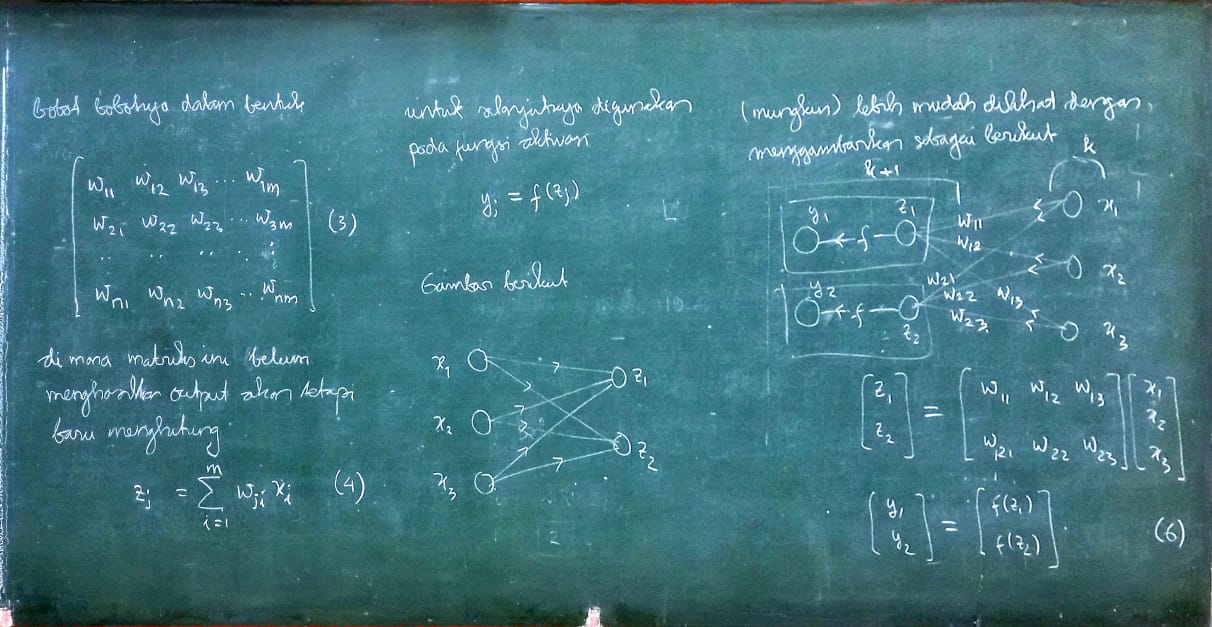 bobot bobotnya dalam bentuk
w11 w12 w13 ... w1m
w21 w22 w23 ... w3m
.. .. .. . ⋮
wn1 wn2 wn3 ... wnm
(3)
di mana matriks ini belum
menghasilkan output akan tetapi
baru menghitung
zj = ∑ i=1 m wji xi (4)
untuk selanjutnya digunakan
pada fungsi aktivasi
yj = f(zj)
Gambar berikut
x1 z1
x2 z2
x3
(mungkin) lebih mudah dilihat dengan
menggambarkan sebagai berikut
k+1 k
y1 f z1 w11 x1
w12
w21 x2
y2 f z2 w22 w13
w23 x3
[z1 z2] = [w11 w12 w13 w21 w22 w23] [x1 x2 x3]
[y1 y2] = [f(z1) f(z2)] (6)